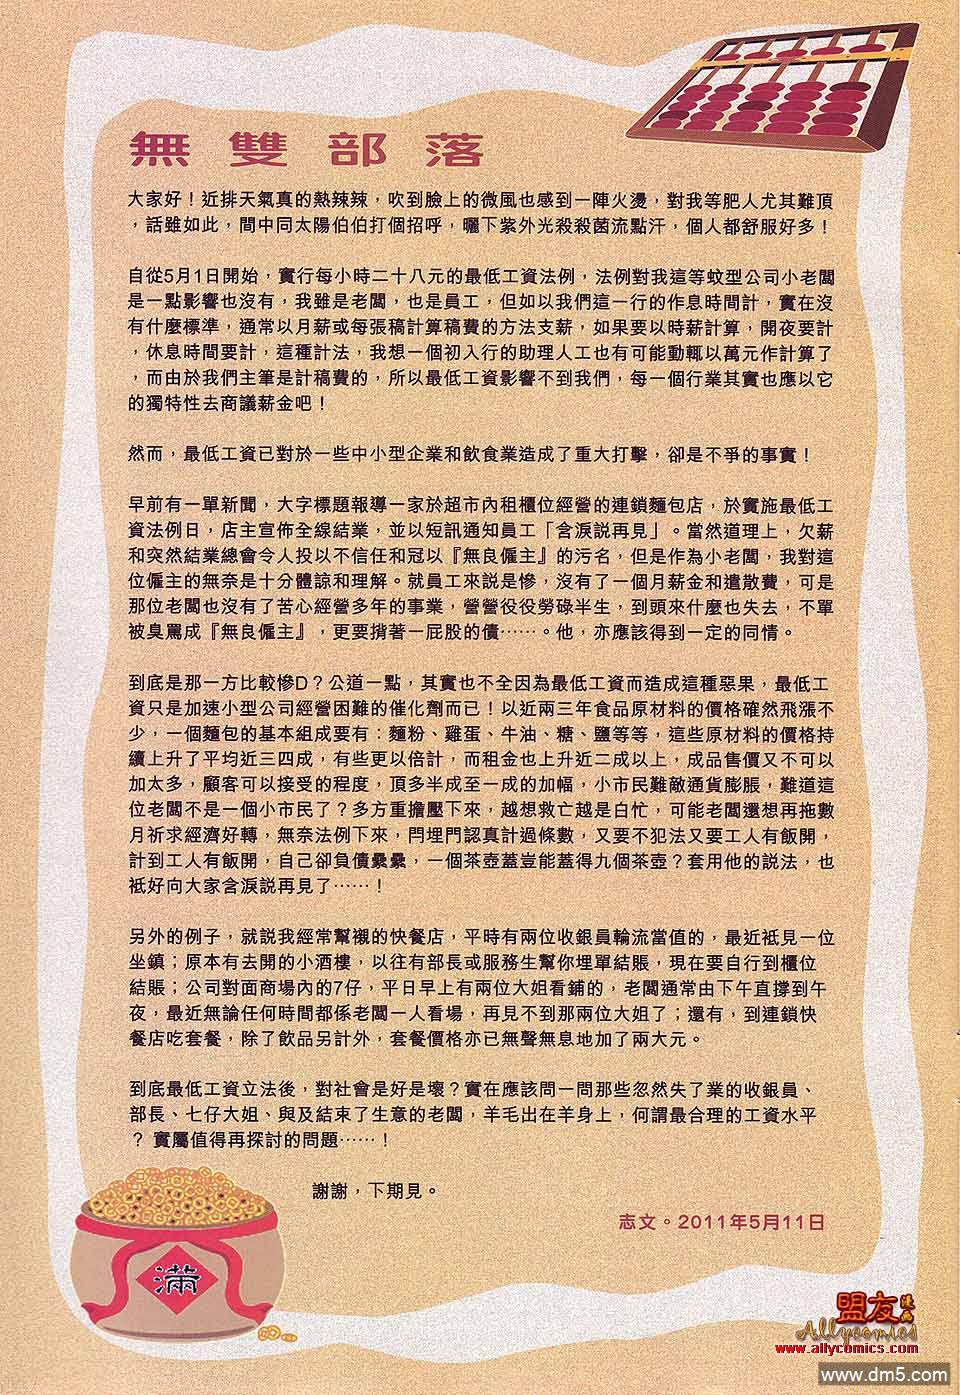 無雙部落
大家好！近排天氣真的熱辣辣，吹到臉上的微風也感到一陣火燙，對我等肥人尤其難頂
，話雖如此，間中同太陽伯伯打個招呼，曬下紫外光殺殺菌流點汗，個人都舒服好多！
自從5月1日開始，實行每小時二十八元的最低工資法例，法例對我這等蚊型公司小老闆
是一點影響也沒有，我雖是老闆，也是員工，但如以我們這一行的作息時間計，實在沒
有什麼標準，通常以月薪或每張稿計算稿費的方法支薪，如果要以時薪計算，開夜要計
，休息時間要計，這種計法，我想一個初入行的助理人工也有可能動輒以萬元作計算了
，而由於我們主筆是計稿費的，所以最低工資影響不到我們，每一個行業其實也應以它
的獨特性去商議薪金吧！
然而，最低工資已對於一些中小型企業和飲食業造成了重大打擊，卻是不爭的事實！
早前有一單新聞，大字標題報導一家於超市內租櫃位經營的連鎖麵包店，於實施最低工
資法例日，店主宣佈全線結業，並以短訊通知員工「含淚説再見」。當然道理上，欠薪
和突然結業總會令人投以不信任和冠以『無良僱主』的污名，但是作為小老闆，我對這
位僱主的無奈是十分體諒和理解。就員工來説是慘，沒有了一個月薪金和遣散費，可是
那位老闆也沒有了苦心經營多年的事業，營營役役勞碌半生，到頭來什麼也失去，不單
被臭罵成『無良僱主』，更要揹著一屁股的債……。他，亦應該得到一定的同情。
到底是那一方比較慘D？公道一點，其實也不全因為最低工資而造成這種惡果，最低工
資只是加速小型公司經營困難的催化劑而已！以近兩三年食品原材料的價格確然飛漲不
少，一個麵包的基本組成要有：麵粉、雞蛋、牛油、糖、鹽等等，這些原材料的價格持
續上升了平均近三四成，有些更以倍計，而租金也上升近二成以上，成品售價又不可以
加太多，顧客可以接受的程度，頂多半成至一成的加幅，小市民難敵通貨膨脹，難道這
位老闆不是一個小市民了？多方重擔壓下來，越想救亡越是白忙，可能老闆還想再拖數
月祈求經濟好轉，無奈法例下來，閂埋門認真計過條數，又要不犯法又要工人有飯開，
計到工人有飯開，自己卻負債纍纍，一個茶壺蓋豈能蓋得九個茶壺？套用他的説法，也
衹好向大家含淚説再見了……！
另外的例子，就説我經常幫襯的快餐店，平時有兩位收銀員輪流當值的，最近衹見一位
坐鎮；原本有去開的小酒樓，以往有部長或服務生幫你埋單結賬，現在要自行到櫃位
結賬；公司對面商場內的7仔，平日早上有兩位大姐看鋪的，老闆通常由下午直撐到午
夜，最近無論任何時間都係老闆一人看場，再見不到那兩位大姐了；還有，到連鎖快
餐店吃套餐，除了飲品另計外，套餐價格亦已無聲無息地加了兩大元。
到底最低工資立法後，對社會是好是壞？實在應該問一問那些忽然失了業的收銀員、
部長、七仔大姐、與及結束了生意的老闆，羊毛出在羊身上，何謂最合理的工資水平
？實屬值得再探討的問題……！
謝謝，下期見。
志文。2011年5月11日
滿
盟友漫畫
Allycomics
www.allycomics.com
www.dm5.com